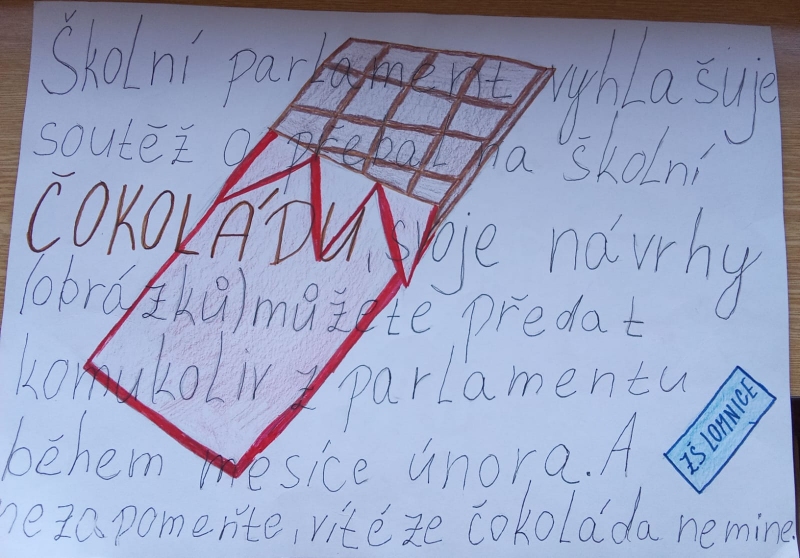 Školní parlament vyhlašuje
soutěž o přebal na školní
ČOKOLÁDU, svoje návrhy
(obrázků) můžete předat
komukoliv z parlamentu
během mesíce února. A
nezapomeňte, vítéze čokoláda nemine.
ZŠ LOMNICE